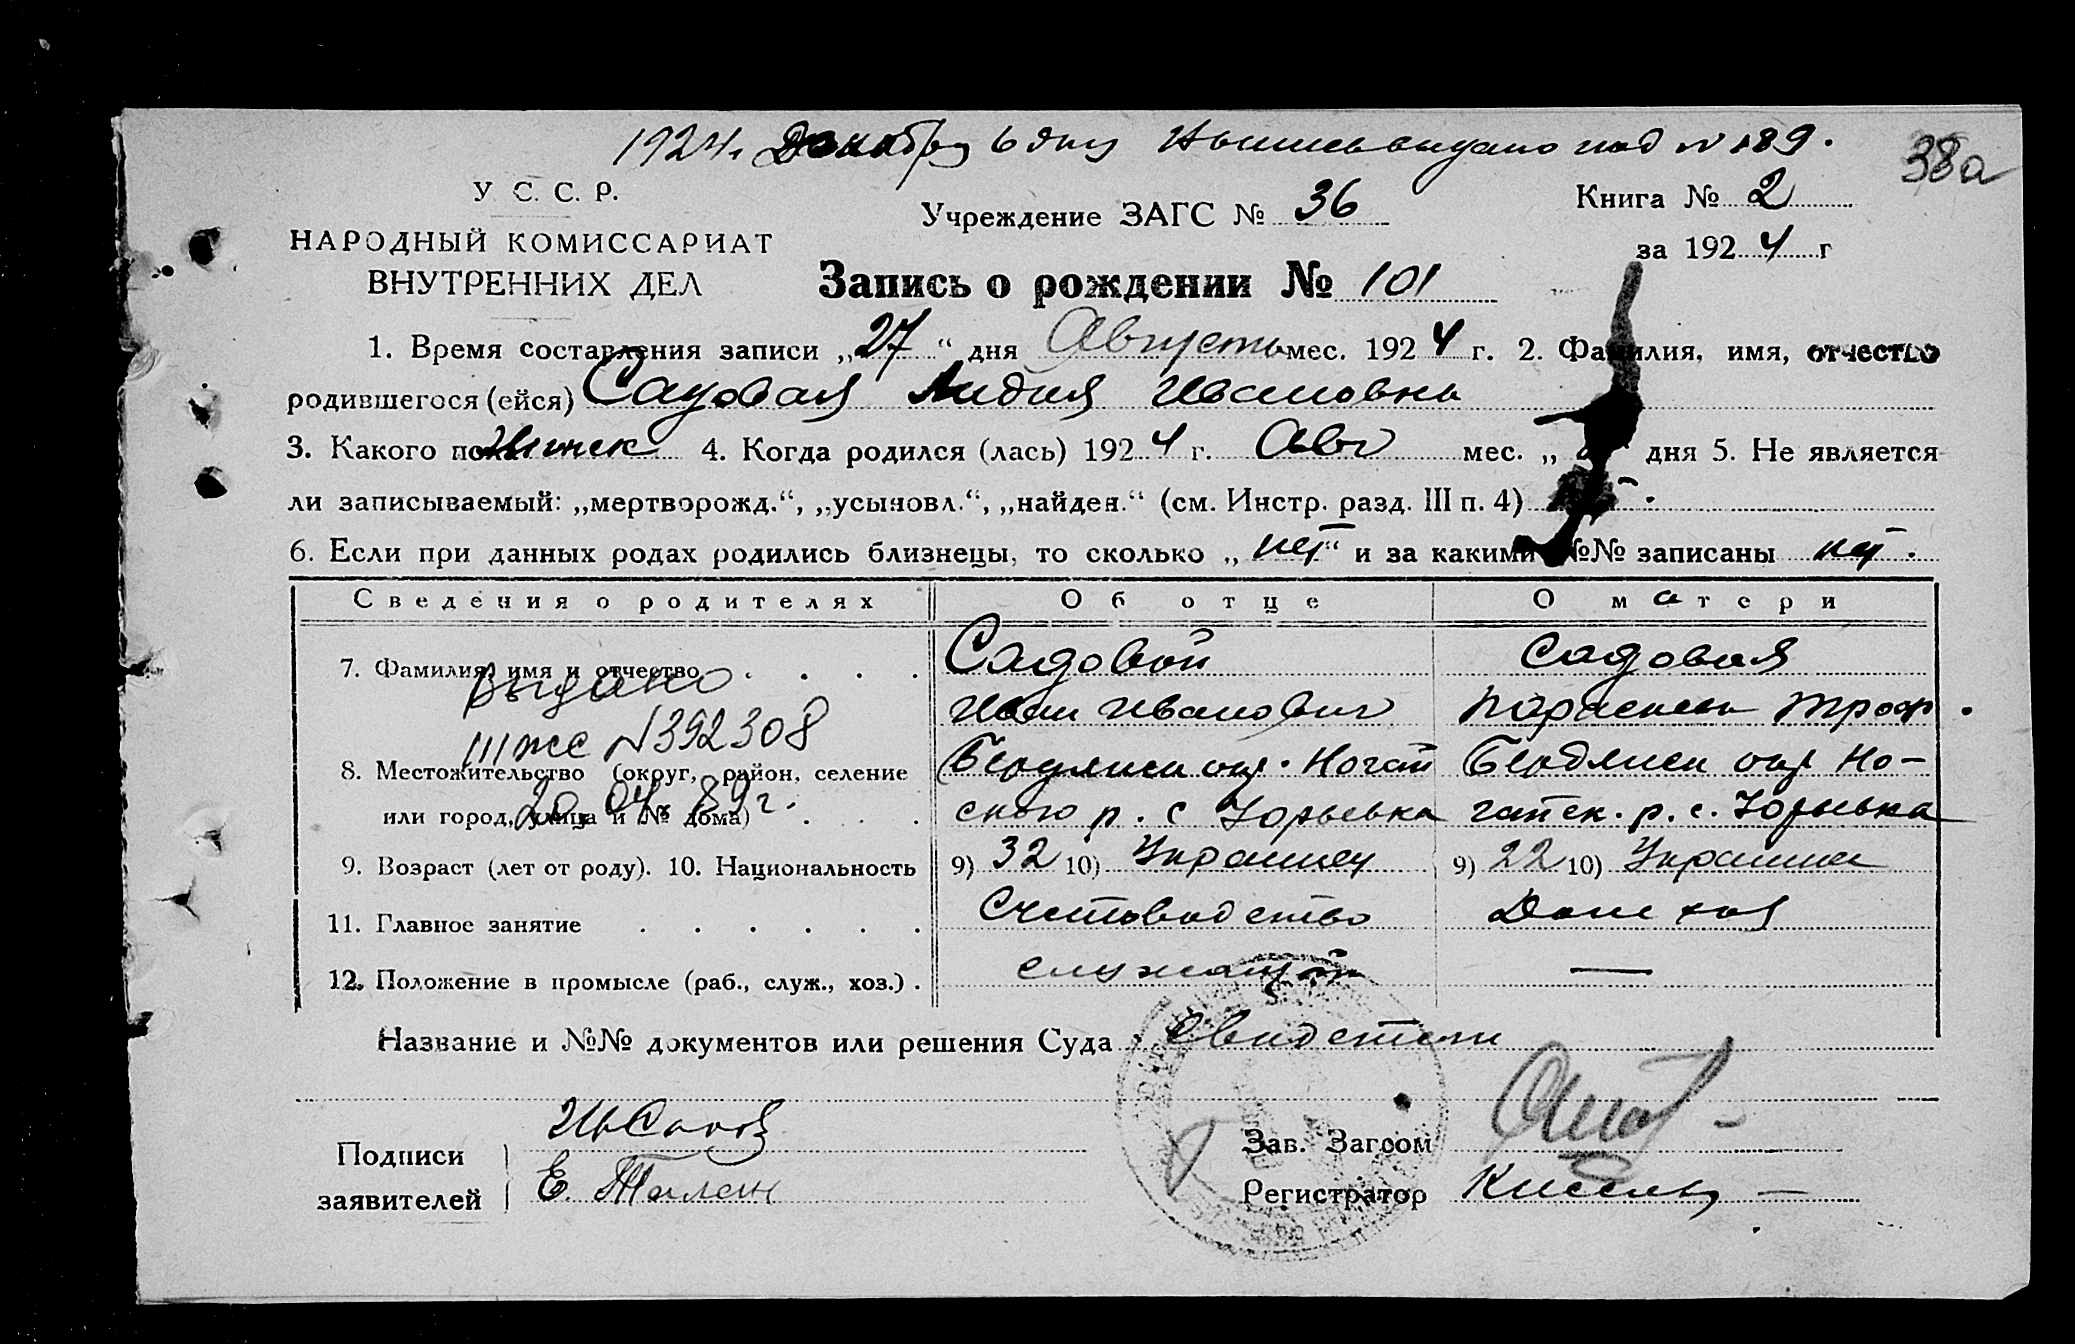 1924 г. Декабря 6 дня выпись выдана под № 189.
38а
У. С. С. Р.
НАРОДНЫЙ КОМИССАРИАТ
ВНУТРЕННИХ ДЕЛ
Учреждение ЗАГС № 36
Книга № 2
за 1924 г
Запись о рождении № 101
1. Время составления записи „27“ дня Августа мес. 1924 г. 2. Фамилия, имя, отчество
родившегося (ейся) Садовая Лидия Ивановна
3. Какого пола женск 4. Когда родился (лась) 1924 г. Авг мес. „ “ дня 5. Не является
ли записываемый: „мертворожд.“, „усыновл.“, „найден.“ (см. Инстр. разд. III п. 4)
6. Если при данных родах родились близнецы, то сколько „нет“ и за какими №№ записаны нет.
Сведения о родителях Об отце О матери
7. Фамилия, имя и отчество . . . . Садовой Садовая
Выдано
Иван Иванович Параскева Троф.
III жс №392308
8. Местожительство (округ, район, селение Бердянск окр. Ногай Бердянск окр Но-
20. 04. 89 г.
или город, улица и № дома) . . . ского р. с Юрьевка гайск. р. с. Юрьевка
9. Возраст (лет от роду). 10. Национальность 9) 32 10) Украинец 9) 22 10) Украинка
11. Главное занятие . . . . . . Счетоводство Дом хоз
12. Положение в промысле (раб., служ., хоз.) . служащий —
Название и №№ документов или решения Суда Свидетели
Подписи
заявителей
Е.
Зав. Загсом
Регистратор